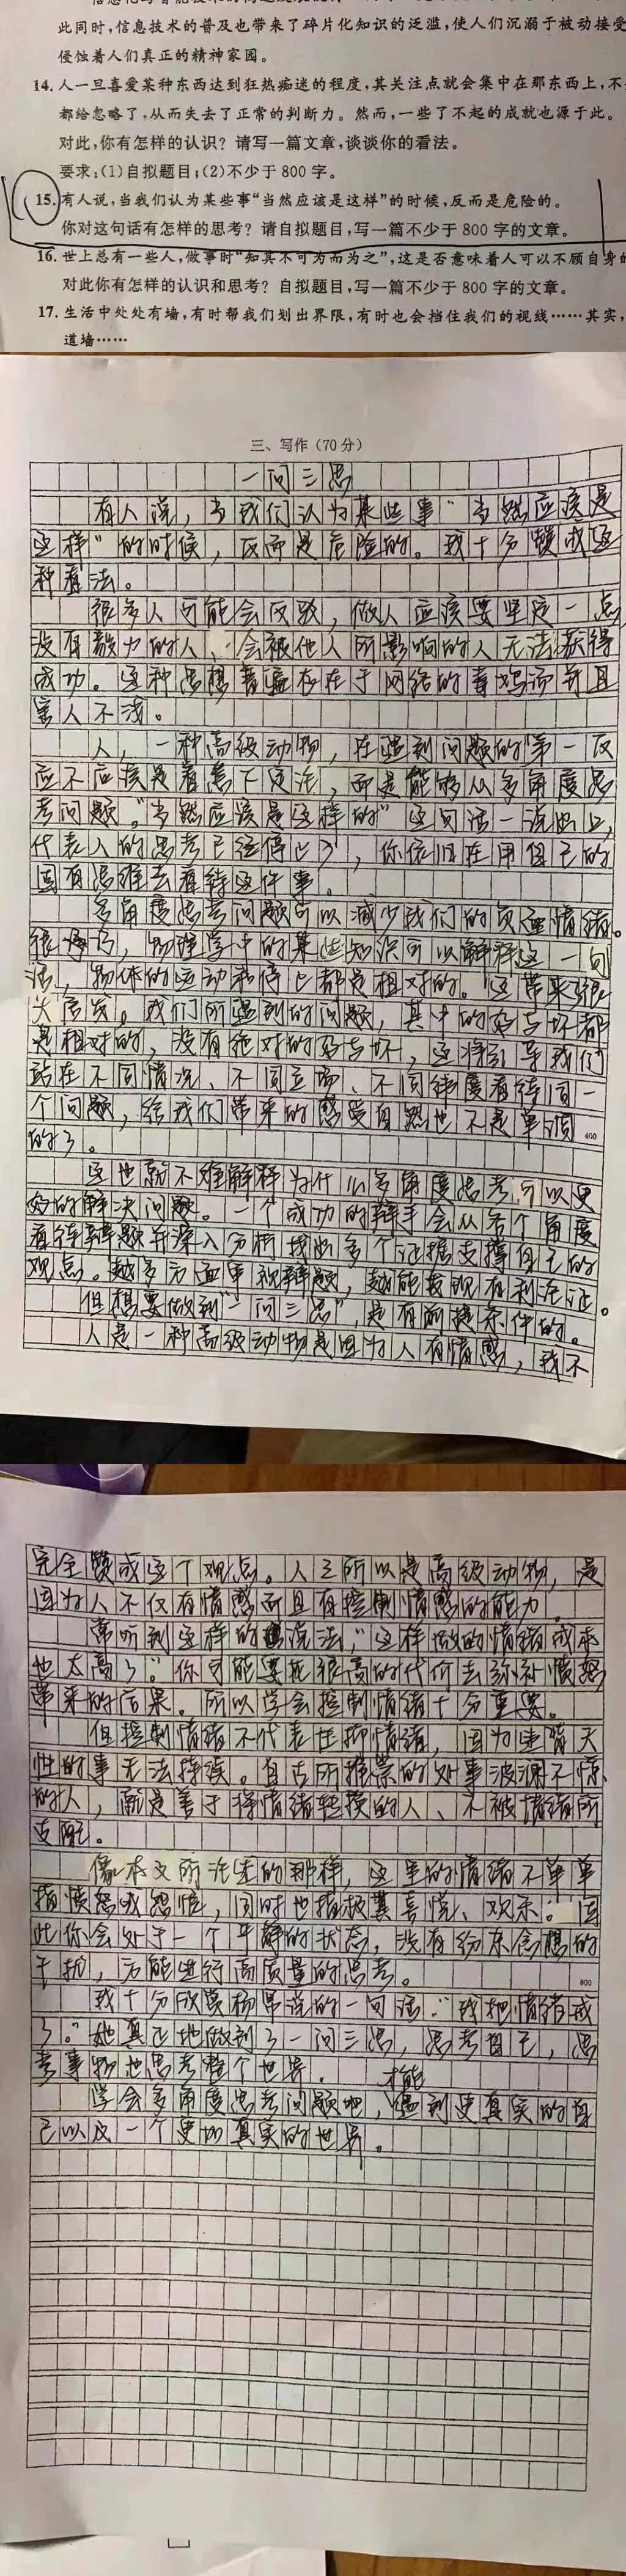 此同时,信息技术的普及也带来了碎片化知识的泛滥,使人们沉溺于被动接受
侵蚀着人们真正的精神家园。
14. 人一旦喜爱某种东西达到狂热痴迷的程度,其关注点就会集中在那东西上,不
都给忽略了,从而失去了正常的判断力。然而,一些了不起的成就也源于此。
对此,你有怎样的认识?请写一篇文章,谈谈你的看法。
要求:(1)自拟题目;(2)不少于 800 字。
15. 有人说,当我们认为某些事“当然应该是这样”的时候,反而是危险的。
你对这句话有怎样的思考?请自拟题目,写一篇不少于 800 字的文章。
16. 世上总有一些人,做事时“知其不可为而为之”,这是否意味着人可以不顾自身的
对此你有怎样的认识和思考?自拟题目,写一篇不少于 800 字的文章。
17. 生活中处处有墙,有时帮我们划出界限,有时也会挡住我们的视线……其实,
道墙……
三、写作(70 分)
一问三思
有人说,当我们认为某些事“当然应该是
这样”的时候,反而是危险的。我十分赞成这
种看法。
很多人可能会反驳,做人应该要坚定一点,
没有毅力的人、会被他人所影响的人无法获得
成功。这种思想普遍存在于网络的毒鸡汤并且
害人不浅。
人,一种高级动物,在遇到问题的第一反
应不应该是着急下定论,而是能够从多角度思
考问题。“当然应该是这样的”这句话一说出口,
代表人的思考已经停止了,你依旧在用自己的
固有思维去看待这件事。
多角度思考问题可以减少我们的负面情绪。
很凑巧,物理学中的某些知识可以解释这一句
话,“物体的运动和停止都是相对的。”这带来很
大启发。我们所遇到的问题,其中的好与坏都
是相对的,没有绝对的好与坏,这将引导我们
站在不同情况、不同立场、不同纬度看待同一
个问题,给我们带来的感受自然也不是单调
的了。
400
这也就不难解释为什么多角度思考可以更
好的解决问题。一个成功的辩手会从各个角度
看待辩题并深入分析找出多个证据支撑自己的
观点。越多方面审视辩题,越能找到有利论证。
但想要做到“一问三思”,是有前提条件的。
人是一种高级动物是因为人有情感,我不
完全赞成这个观点。人之所以是高级动物,是
因为人不仅有情感而且有控制情感的能力。
常听到这样的说法,“这样做的情绪成本
也太高了”。你可能要花很高的代价去弥补愤怒
带来的后果。所以学会控制情绪十分重要。
但控制情绪不代表压抑情绪,因为违背天
性的事无法持续。自古所推崇的处事波澜不惊
的人,就是善于将情绪转换的人、不被情绪所
支配。
像本文所论述的那样,这里的情绪不单单
指愤怒或怨恨,同时也指极其喜悦、欢乐。因
此你会处于一个平静的状态,没有纷杂念想的
干扰,方能进行高质量的思考。
800
我十分欣赏杨思说的一句话:“我把情绪戒
了。”她真正地做到了一问三思,思考自己,思
考事物也思考整个世界。
学会多角度思考问题吧,才能遇到更真实的自
己以及一个更加真实的世界。